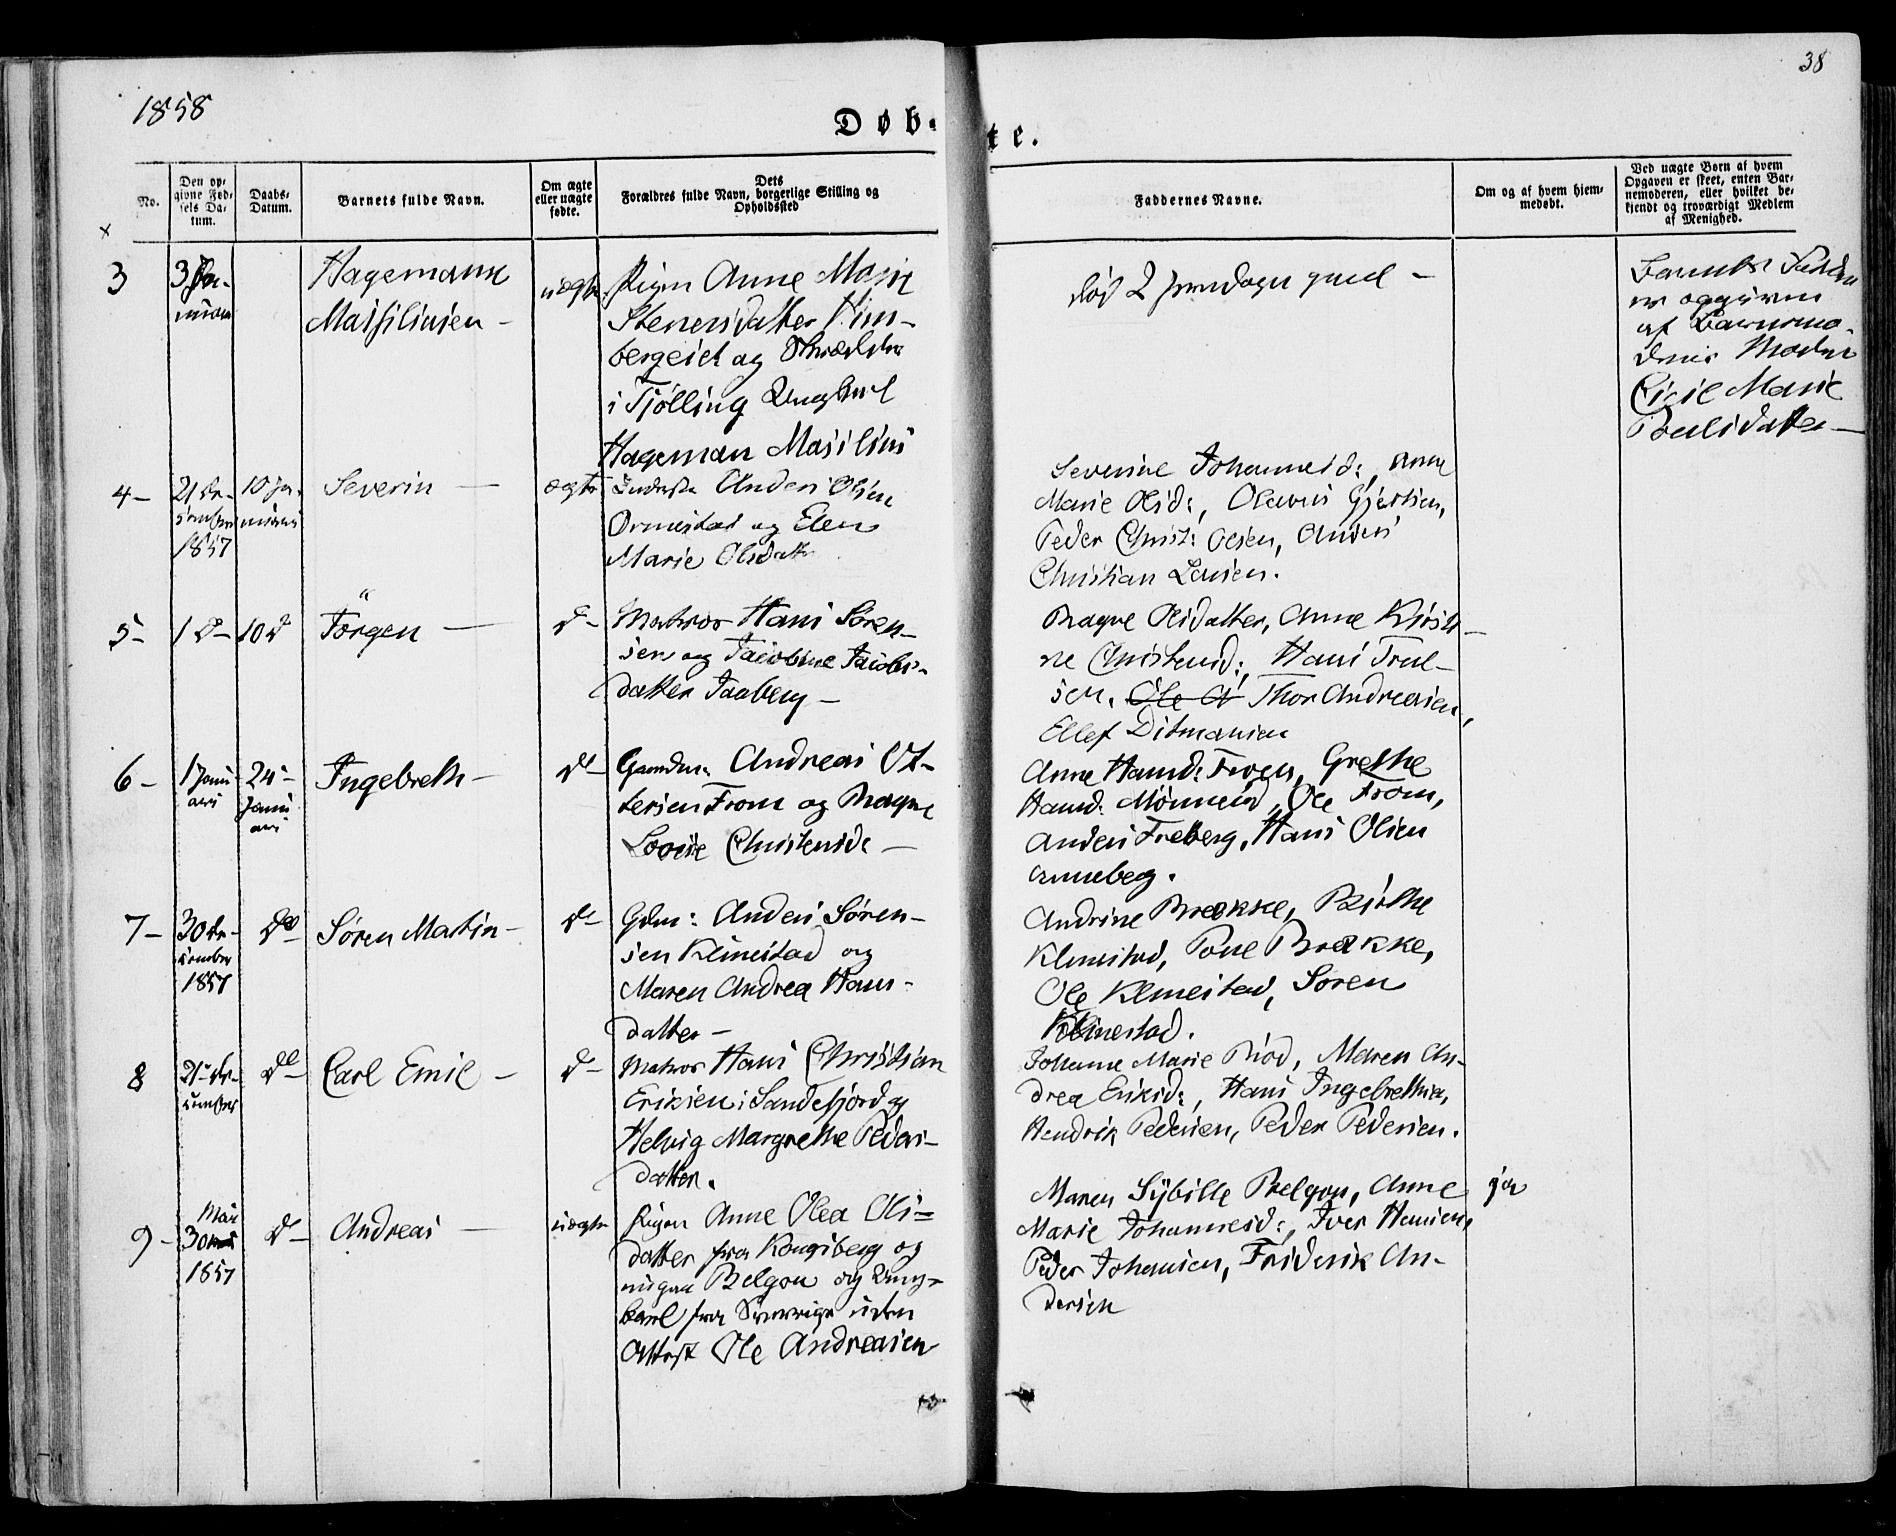 38
1858
Døb-
te.
No.
Den op-
givne Fød-
sels Da-
tum.
Daabs-
Datum.
Barnets fulde Navn.
Om ægte
eller uægte
fødte.
Dets
Forældres fulde Navn, borgerlige Stilling og
Opholdssted
Faddernes Navne.
Om og af hvem hjem-
medøbt.
Ved uægte Børn af hvem
Opgaven er skeet, enten Bar-
nemoderen, eller hvilket be-
kjendt og troværdigt Medlem
af Menighed.
3
3 Ja-
nuar
Hagemann
Massiliusen -
uægte
Pigen Anne Marie
Stenersdatter Him-
bergeiet og Skrædder
i Tjølling Ungkarl
Hageman Masilius
død 2 gammel -
Barnets Fader
er opgiven
af Barnemo-
deris Moder
Marie
Poulsdatter -
4 -
21 De-
cember
1857
10 Ja-
nuari
Severin -
ægte
Inderste Anders Olsen
Ormestad og Elen
Marie Olsdatt
Severine Johannesd:, Anne
Marie Olsd:, Olavus Gjertsen,
Peder Christ: Olsen, Anders
Christian Larsen.
5 -
1 D -
10 D
Jörgen -
D -
Matros Hans Søren-
sen og Jacobine Jacobs-
datter Jaaberg -
Magne Olsdatter, Anne Kirsti-
ne Christensd:, Hans Truls-
sen, Ole A Thor Andreasen,
Ellef Ditmansen
6 -
1 Janu-
ari
24 -
Janu
ari
Ingebreth -
Do
Gaardm: Andreas Ot-
tersen From og Magne
Lovise Christensd: -
Anne Hansd: Freen, Grethe
Hansd: , Ole From,
Anders Freberg, Hans Olsen
Anneberg.
7 -
30 De-
cember
1857
Do
Søren Martin -
Do
Gdm: Anders Søren-
sen Klinestad og
Maren Andrea Hans-
datter -
Andrine Brække, Birthe
Klinestad, Tone Brække,
Ole Klinestad, Søren
Klinestad.
8
21 - De-
cember
Do
Carl Emil -
D -
Matros Hans Christian
Eriksen i Sandefjord og
Helvig Margrethe Peders-
datter.
Johanne Marie Riød, Maren An-
drea Eriksd:, Hans Ingebrethsen,
Hendrik Pedersen, Peder Pedersen.
9 -
Mai
30
1857
D -
Andreas -
uægte
Pigen Anne Olea Ols-
datter fra Kongsberg og
Belgen og Ung-
karl fra Sverrige uden
Attest Ole Andreasen
Maren Sybille Belgen, Anne
Marie Johannesd:, Iver Hansen,
Peder Johansen, Friderik An-
dersen
ja